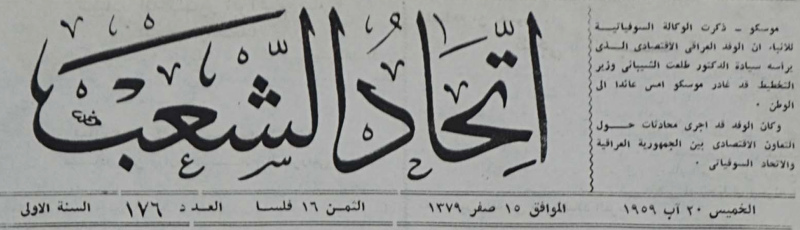 موسكو – ذكرت الوكالة السوفياتية
للانباء ان الوفد العراقي الاقتصادي الذي
يرأسه سيادة الدكتور طلعت الشيباني وزير
التخطيط قد غادر موسكو امس عائدا الى
الوطن ٠
وكان الوفد قد اجرى محادثات حول
التعاون الاقتصادي بين الجمهورية العراقية
والاتحاد السوفياتي ٠
اتّحاد الشّعب
الخميس ٢٠ آب ١٩٥٩ الموافق ١٥ صفر ١٣٧٩ الثمن ١٦ فلسا العدد ١٧٦ السنة الاولى